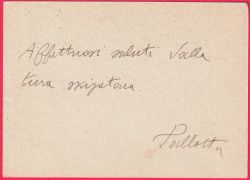 Affettuosi saluti dalla
terra skipetara.
Pallotta